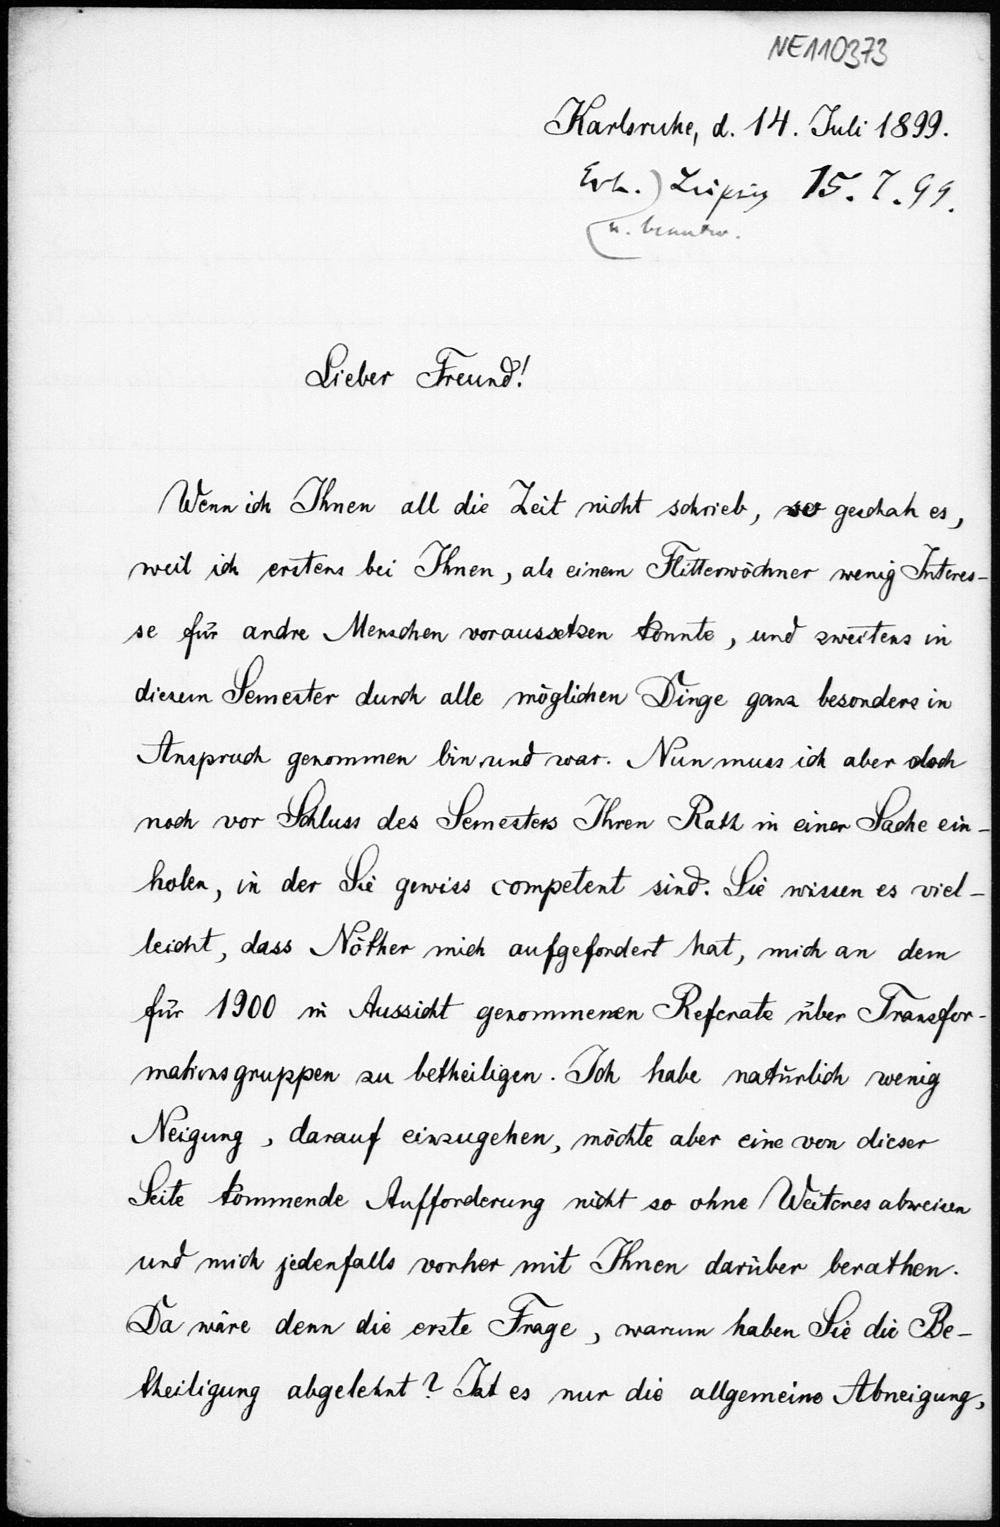 NE110373
Karlsruhe, d. 14. Juli 1899.
Erh. ) Leipzig 15. 7. 99.
( u. beantw.
Lieber Freund!
Wenn ich Ihnen all die Zeit nicht schrieb, so geschah es,
weil ich erstens bei Ihnen, als einem Flitterwöchner wenig Interes-
se für andre Menschen voraussetzen konnte, und zweitens in
diesem Semester durch alle möglichen Dinge ganz besonders in
Anspruch genommen bin und war. Nun muss ich aber doch
noch vor Schluss des Semesters Ihren Rath in einer Sache ein-
holen, in der Sie gewiss competent sind. Sie wissen es viel-
leicht, dass Nöther mich aufgefordert hat, mich an dem
für 1900 in Aussicht genommenen Referate über Transfor-
mationsgruppen zu betheiligen. Ich habe natürlich wenig
Neigung, darauf einzugehen, möchte aber eine von dieser
Seite kommende Aufforderung nicht so ohne Weiteres abweisen
und mich jedenfalls vorher mit Ihnen darüber berathen.
Da wäre denn die erste Frage, warum haben Sie die Be-
theiligung abgelehnt? Ist es nur die allgemeine Abneigung,